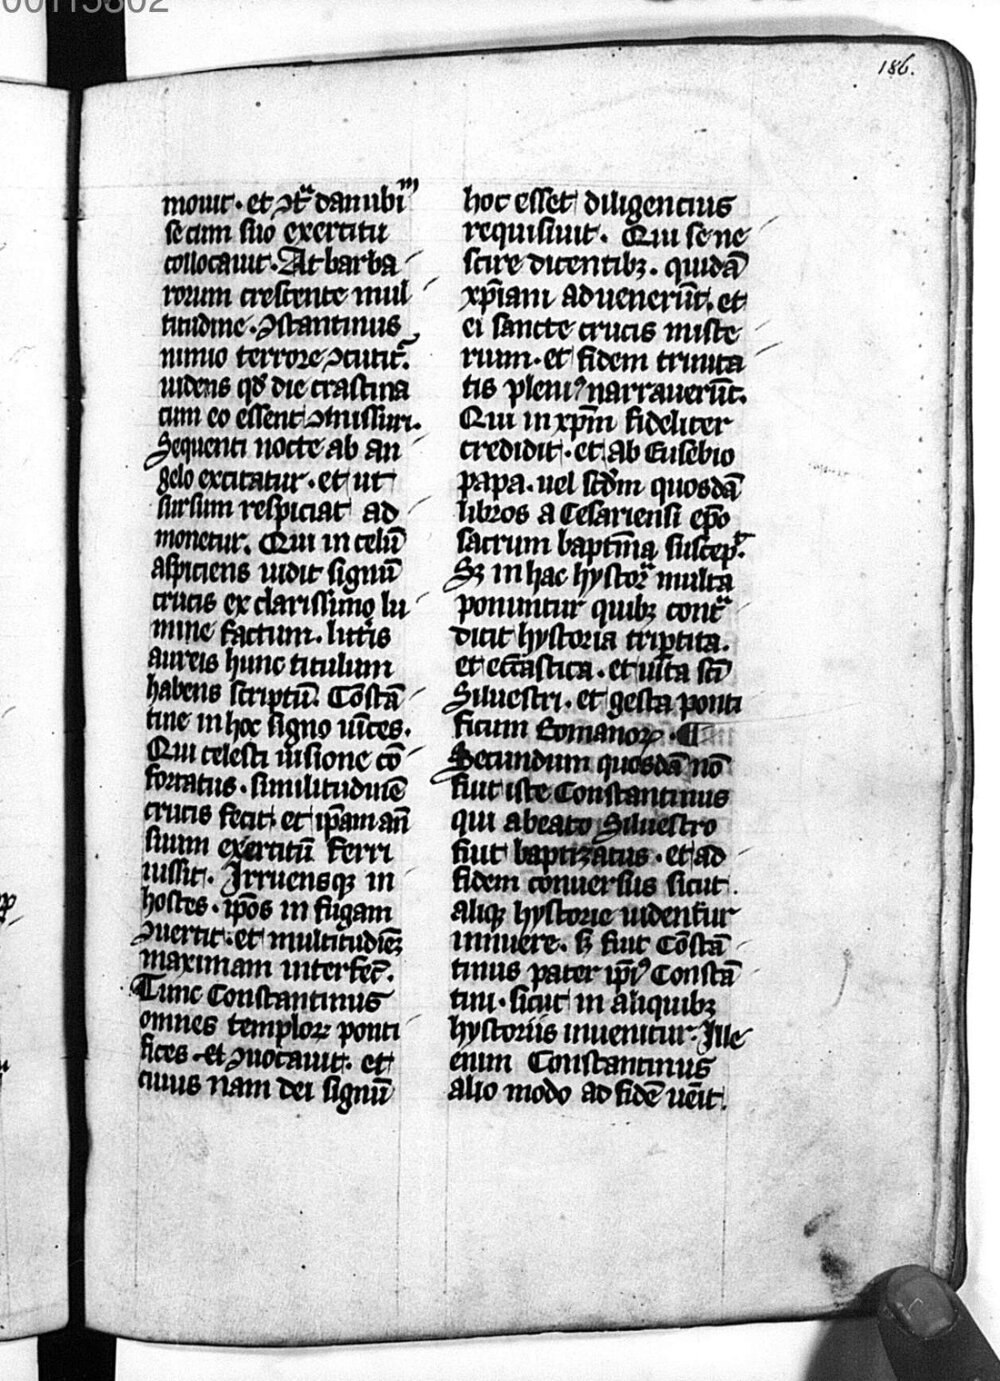 00115802
186.
mouit. et ꝯtͣ danubiͫ
se cum suo exercitu
collocauit. At barba
rorum crescente mul
titudine. ꝯstantinus
nimio terrore ꝯcutit᷑.
uidens qd̕ die crastina
cum eo essent ꝯmissuri.
Sequenti nocte ab an
gelo excitatur. et ut
sursum respiciat ad
monetur. Qui in celū
aspiciens uidit signū
crucis ex clarissimo lu
mine factum. litt̕is
aureis hunc titulum
habens scriptū. Cōstā
tine in hoc signo uīces.
Qui celesti uisione cō
fortatus. similitudinē
crucis fecit. et ip̄am an̄
suum exercitū ferri
iussit. Irruensqꝫ in
hostes. ip̄os in fugam
ꝯuertit. et multitudiēꝫ
maximam interfec̄.
Tunc Constantinus
omnes temploꝝ ponti
fices et ꝯuocauit. et
cuius nam dei signū
hoc esset diligencius
requisiuit. Qui se ne
scire dicentibꝫ. quidā
xp̄iani aduenerūt. et
ei sancte crucis miste
rium. et fidem trinita
tis pleniꝰ narrauerūt.
Qui in xp̄m fideliter
credidit. et ab Eusebio
papa. uel scd̄m quosdā
libros a Cesariensi ep̄o
sacrum baptīma suscep̕.
Sꝫ in hac hystorͣ multa
ponuntur quibꝫ contͣ
dicit hystoria trip̲tita.
et ecc̄astica. et uita sc̄i
Siluestri. et gesta ponti
ficum Romanoꝝ. ¶
Secundum quosdā nō
fuit iste Constantinus
qui a beato Siluestro
fuit baptizatus. et ad
fidem conuersus sicut
aliqꝫ hystorie uidentur
innuere. sꝫ fuit Cōstā
tinus pater ip̄iꝰ Constā
tini. sicut in aliquibꝫ
hystoriis inuenitur. Ille
enim Constantinus
alio modo ad fidē uēit.